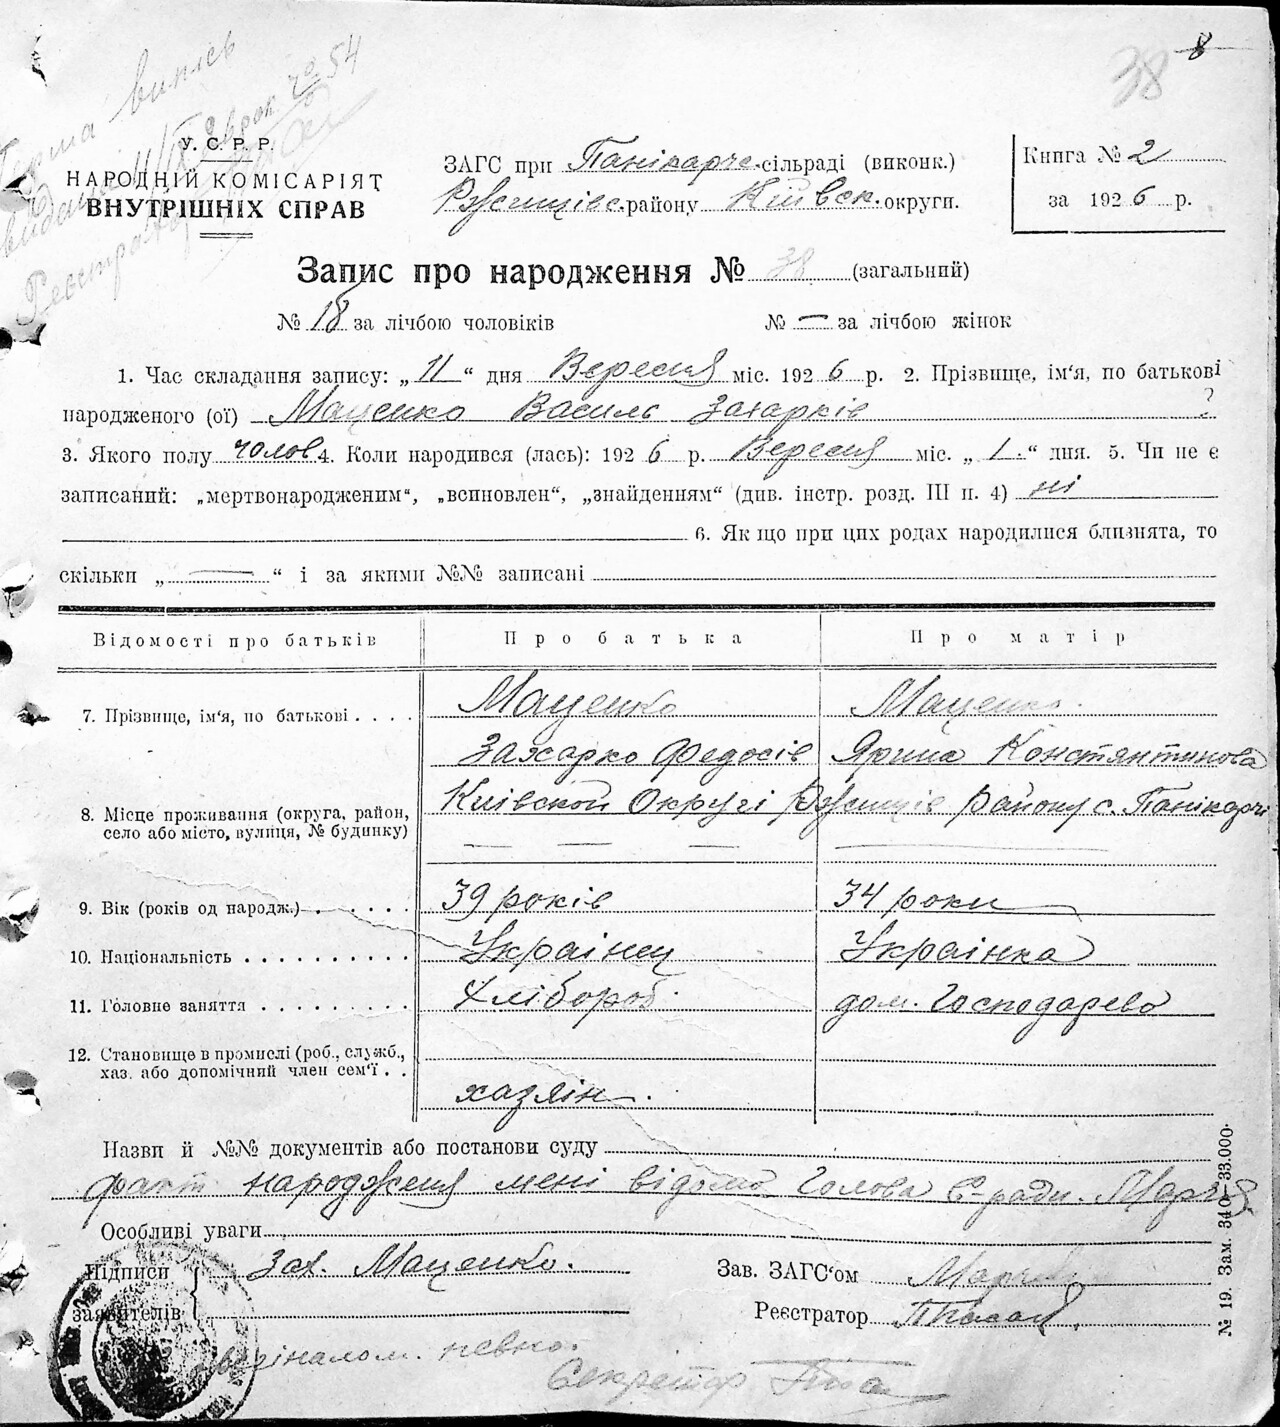 8
38
Перша випись
видана 11/IX врок 54
Реєстратор
У. С. Р. Р.
НАРОДНІЙ КОМІСАРІЯТ
ВНУТРІШНІХ СПРАВ
ЗАГС при Панікарче. сільраді (виконк.)
Ржищівс. району Київск. округи.
Книга № 2
за 1926 р.
Запис про народження № 38 (загальний)
№ 18 за лічбою чоловіків № — за лічбою жінок
1. Час складання запису: „11“ дня Вересня міс. 1926 р. 2. Прізвище, ім‘я, по батькові
народженого (ої) Маценко Василь Захарків ?
3. Якого полу чолов. 4. Коли народився (лась): 1926 р. Вересня міс. „1.“ дня. 5. Чи не є
записаний: „мертвонародженим“, „всиновлен“, „знайденням“ (див. інстр. розд. III п. 4) ні
6. Як що при цих родах народилися близнята, то
скільки „—“ і за якими №№ записані
Відомості про батьків Про батька Про матір
7. Прізвище, ім‘я, по батькові . . . . Маценко Маценко.
Захарко Федосів Ярина Констянтинова
8. Місце проживання (округа, район, Київской Округі Ржищів. Району с. Панікарчі
село або місто, вулиця, № будинку) — — —
9. Вік (років од народж.) . . . . . . 39 років 34 роки
10. Національність . . . . . . . . . . Українец Українка
11. Головне заняття . . . . . . . . . Хлібороб. дом. Господарево
12. Становище в промислі (роб., служб.,
хаз. або допомічний член сем‘ї . . хазяін.
Назви й №№ документів або постанови суду
факт народженя мені відомо Голова С-ради.
Особливі уваги
Підписи Зах. Маценко. Зав. ЗАГС‘ом
заявителів Реєстратор
оригіналом. певно.
Секретор
№ 19. Зам. 340—33.000.